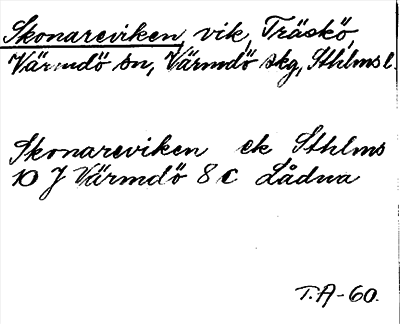 Skonareviken, vik, Träskö,
Värmdö sn, Värmdö skg, Sthlms l.
Skonareviken ek Sthlms
10 J Värmdö 8 c Lådna
T.A-60.